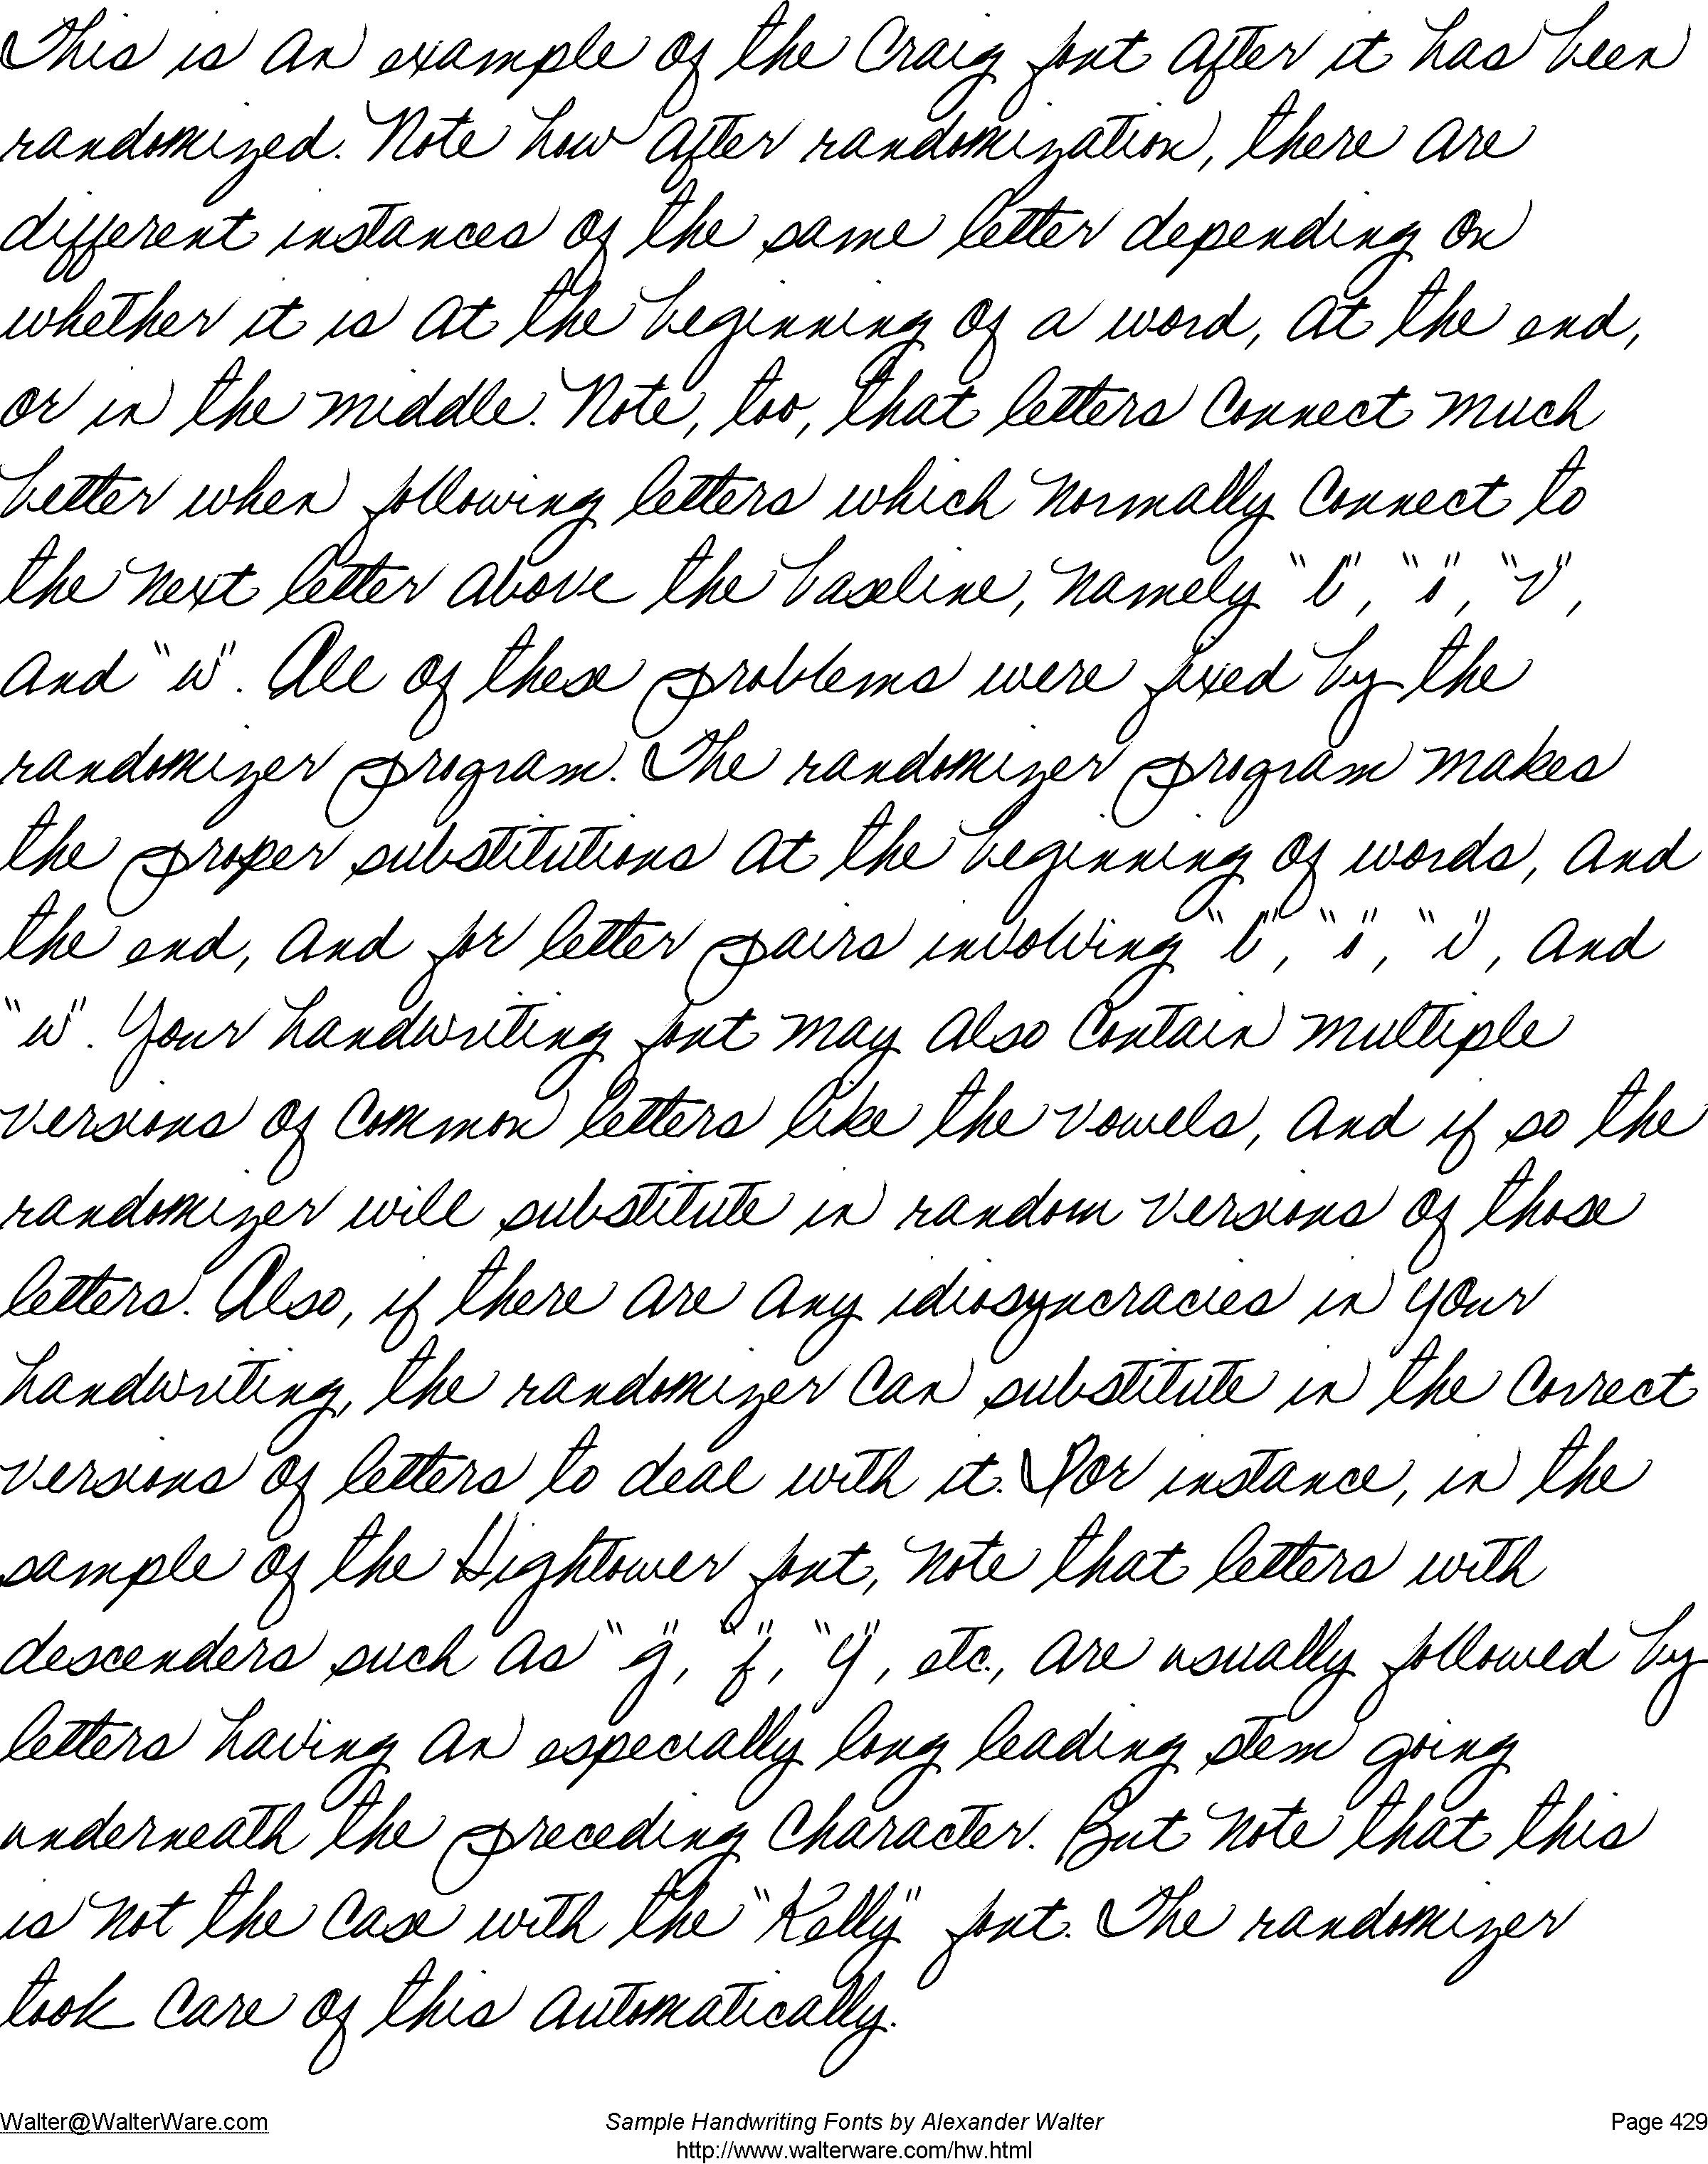 This is an example of the Craig font after it has been
randomized. Note how after randomization, there are
different instances of the same letter depending on
whether it is at the beginning of a word, at the end,
or in the middle. Note, too, that letters connect much
better when following letters which normally connect to
the next letter above the baseline, namely "b", "o", "v",
and "w". All of these problems were fixed by the
randomizer program. The randomizer program makes
the proper substitutions at the beginning of words, and
the end, and for letter pairs involving "b", "o", "v", and
"w". Your handwriting font may also contain multiple
versions of common letters like the vowels, and if so the
randomizer will substitute in random versions of those
letters. Also, if there are any idiosyncracies in your
handwriting, the randomizer can substitute in the correct
versions of letters to deal with it. For instance, in the
sample of the Hightower font, note that letters with
descenders such as "g", "f", "y", etc., are usually followed by
letters having an especially long leading stem going
underneath the preceding character. But note that this
is not the case with the "Kelly" font. The randomizer
took care of this automatically.
Walter@WalterWare.com Sample Handwriting Fonts by Alexander Walter Page 429
http://www.walterware.com/hw.html